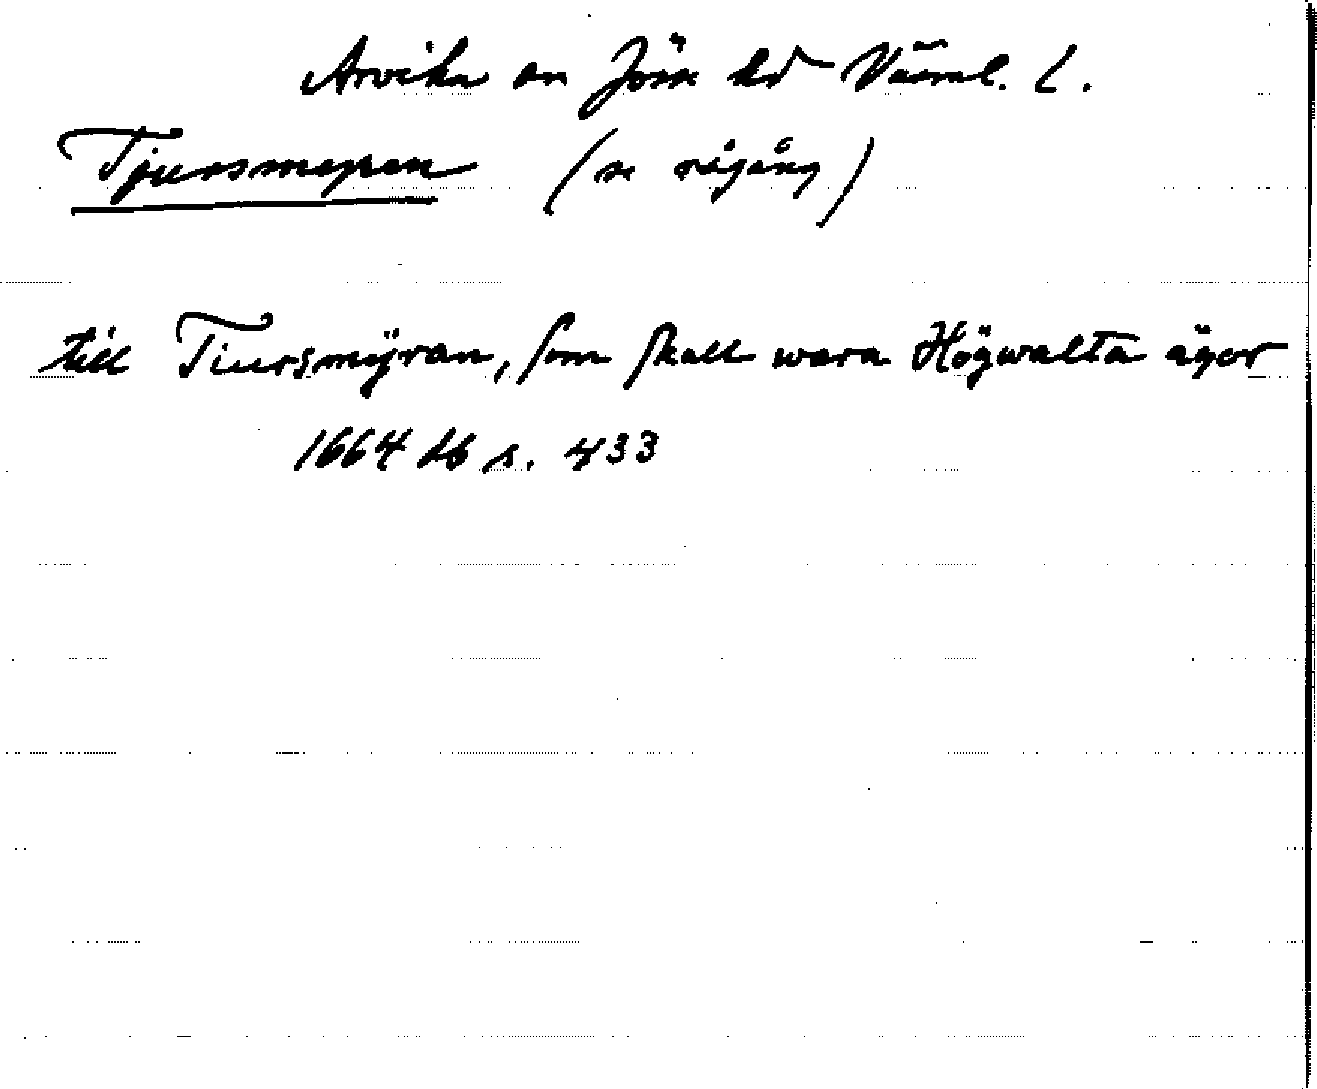 Arvika sn Jösse hd Värml. L.
Tjursmyren (se rågång)
till Tiursmÿran, som skall wara Högwalta ägor
1664 db s. 433